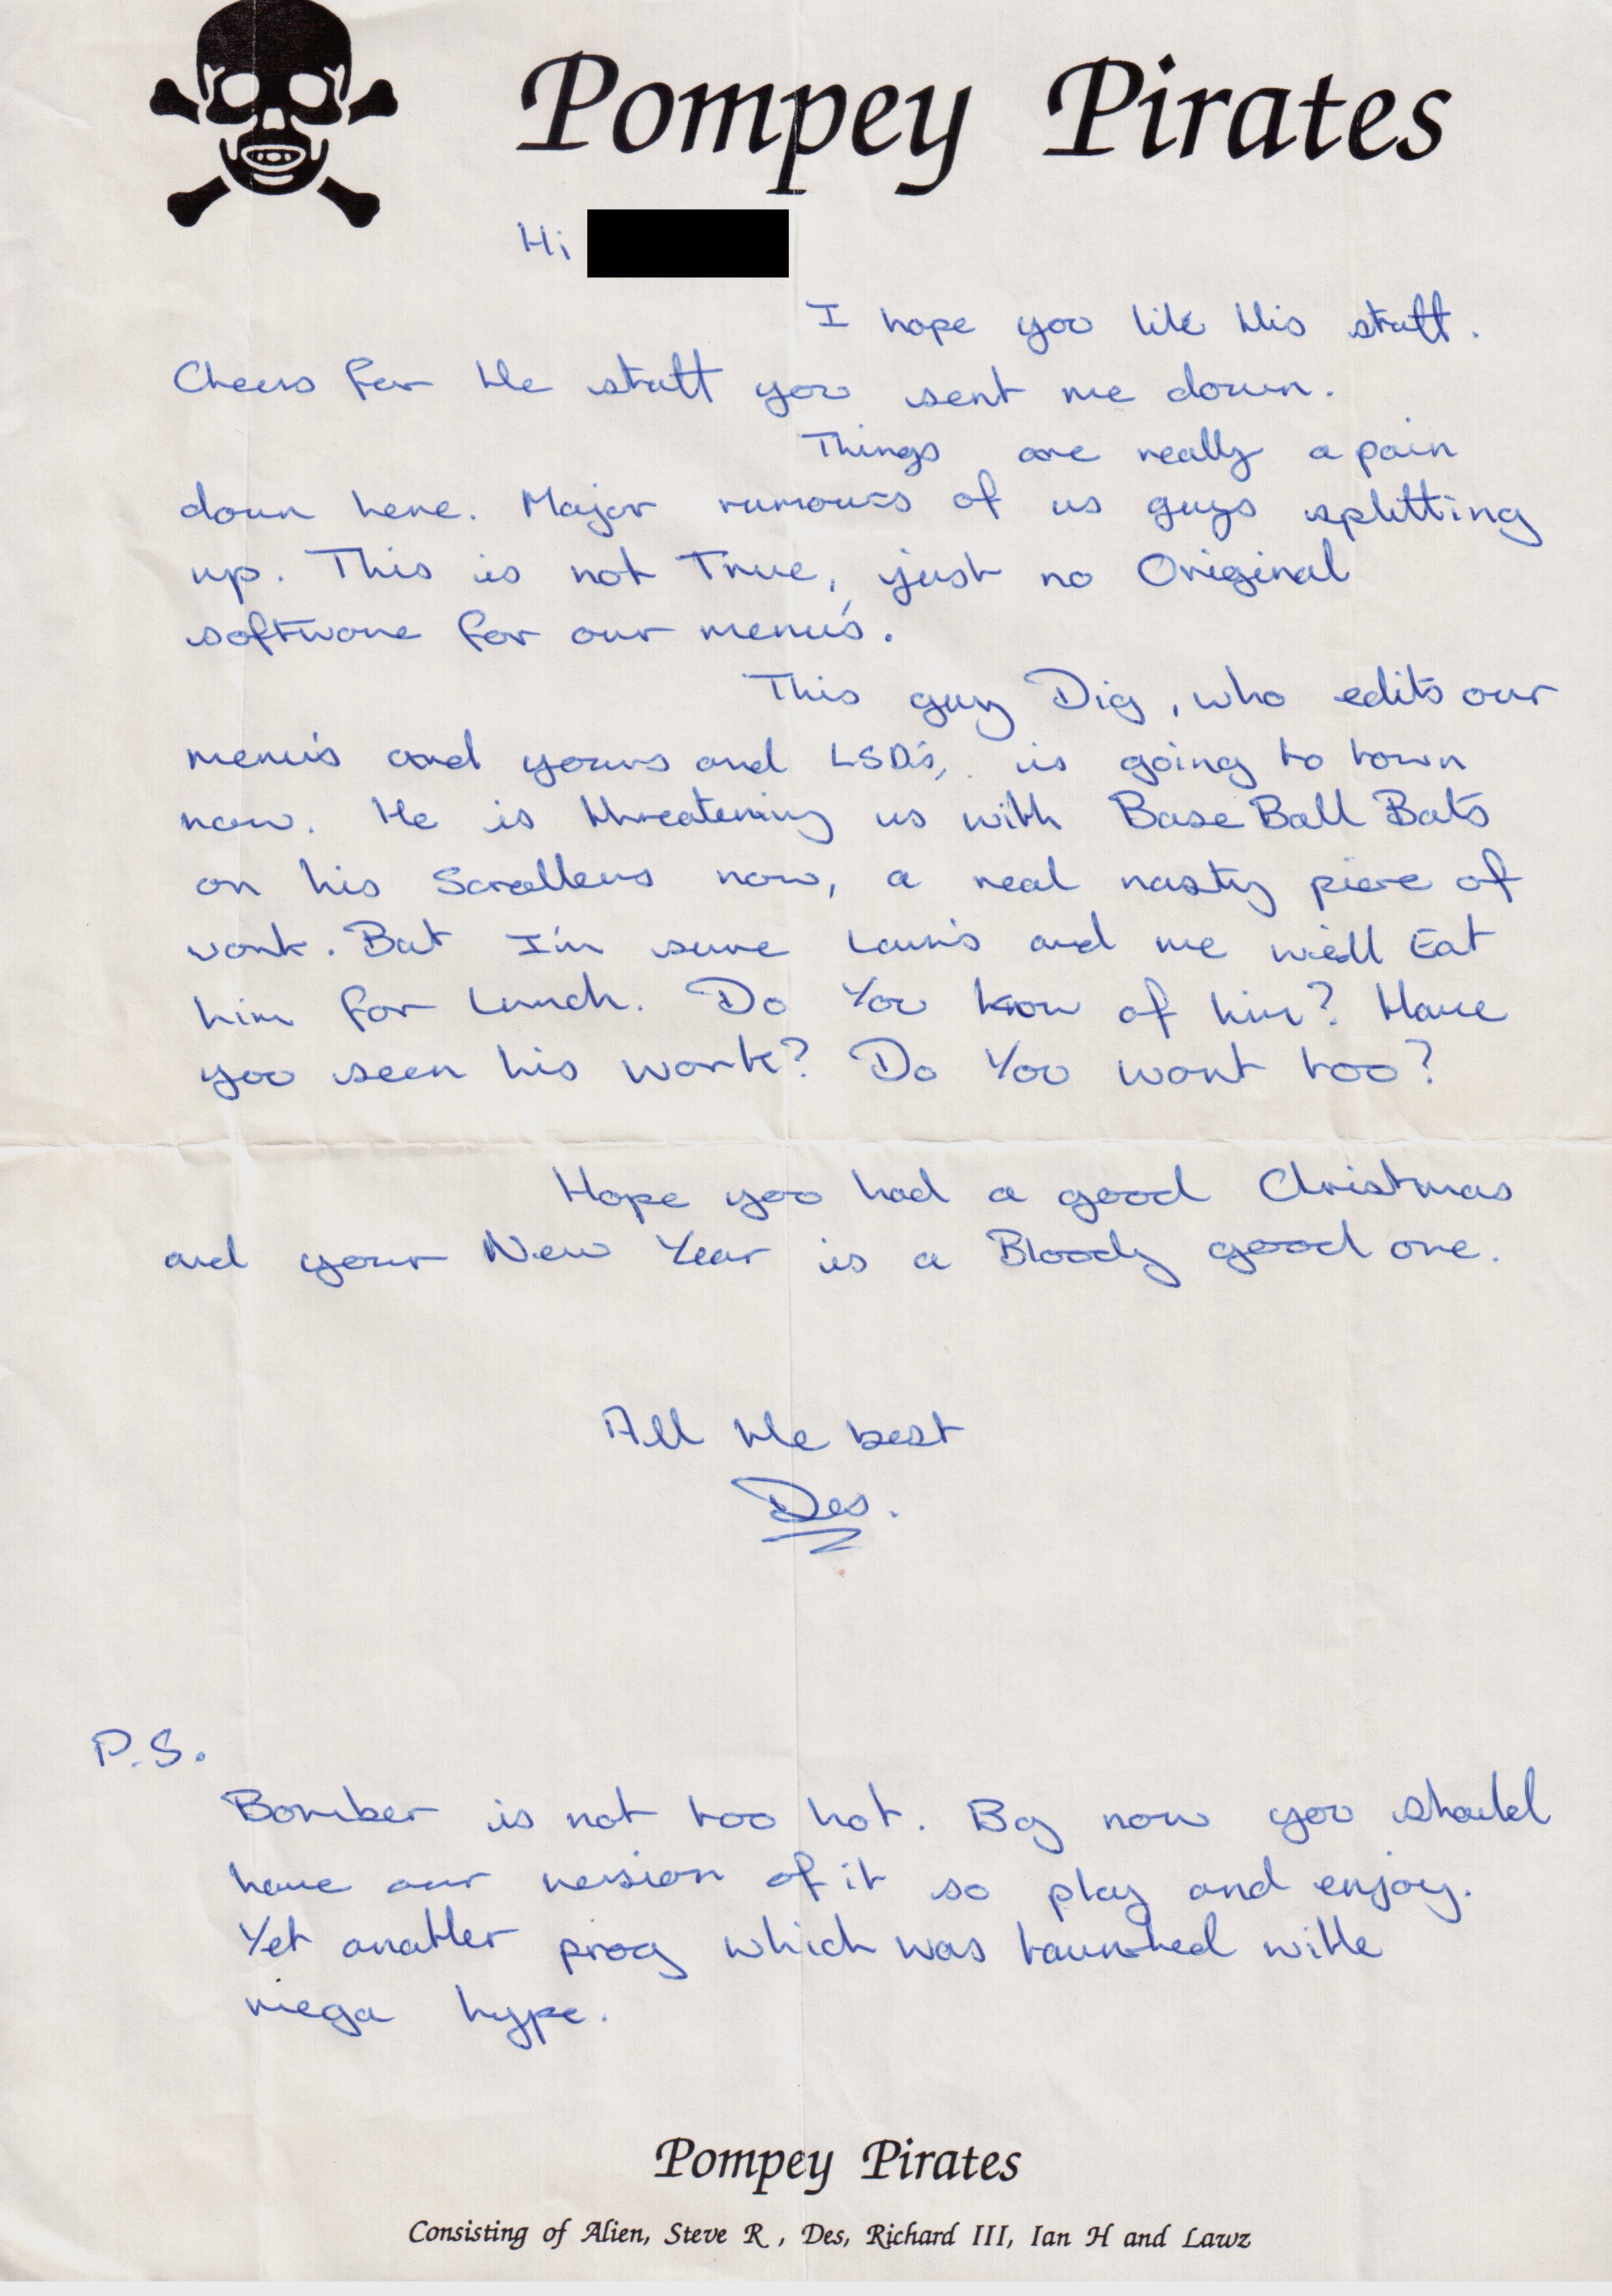 Pompey Pirates
Hi
I hope you like this stuff.
Cheers for the stuff you sent me down.
Things are really a pain
down here. Major rumours of us guys splitting
up. This is not True, just no Original
software for our menu's.
This guy Dig, who edits our
menu's and yours and LSD's, is going to town
now. He is threatening us with Base Ball Bats
on his Scrollers now, a real nasty piece of
work. But I'm sure and me we'll Eat
him for Lunch. Do You know of him? Have
you seen his work? Do You want too?
Hope you had a good Christmas
and your New Year is a Bloody good one.
All the best
Des.
P.S.
Bomber is not too hot. By now you should
have our version of it so play and enjoy.
Yet another prog which was launched
mega hype.
Pompey Pirates
Consisting of Alien, Steve R , Des, Richard III, Ian H and Lawz